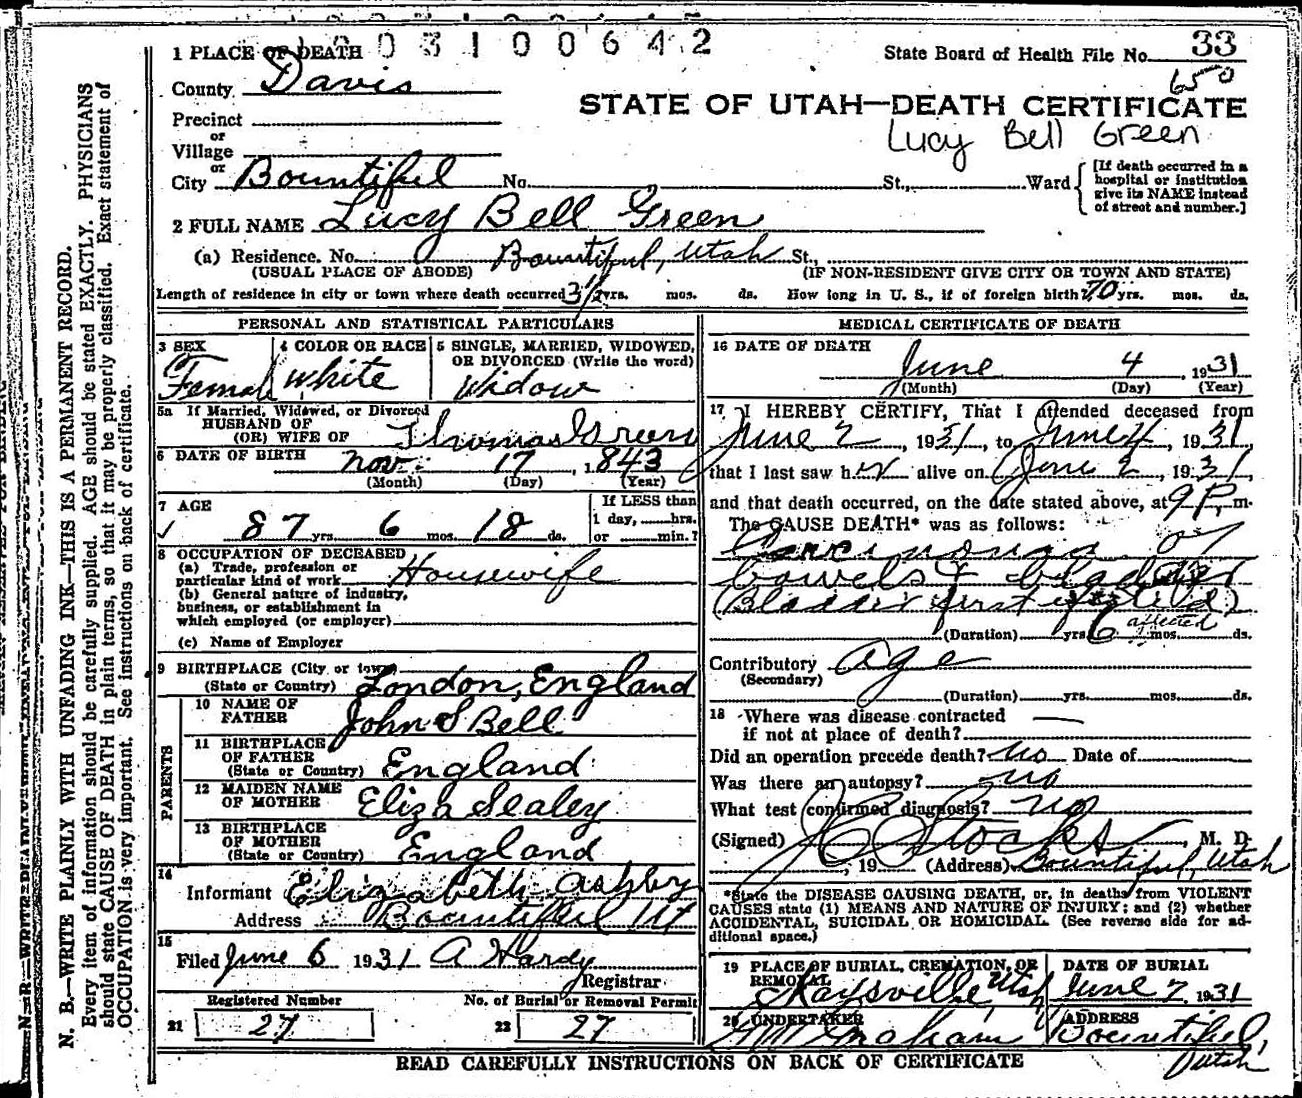 1 PLACE OF DEATH
0 0 3 1 0 0 6 4 2
State Board of Health File No. 33
650
County Davis
STATE OF UTAH—DEATH CERTIFICATE
Lucy Bell Green
Precinct
or
Village
or
City Bountiful No. St., Ward
[If death occurred in a
hospital or institution
give its NAME instead
of street and number.]
2 FULL NAME Lucy Bell Green
(a) Residence. No. Bountiful, Utah St.,
(USUAL PLACE OF ABODE) (IF NON-RESIDENT GIVE CITY OR TOWN AND STATE)
Length of residence in city or town where death occurred yrs. mos. ds. How long in U. S., if of foreign birth? 70 yrs. mos. ds.
PERSONAL AND STATISTICAL PARTICULARS
3 SEX
Female
4 COLOR OR RACE
White
5 SINGLE, MARRIED, WIDOWED,
OR DIVORCED (Write the word)
Widow
5a If Married, Widowed, or Divorced
HUSBAND OF
(OR) WIFE OF Thomas Green
6 DATE OF BIRTH Nov. 17, 1843
(Month) (Day) (Year)
7 AGE
87 yrs. 6 mos. 18 ds.
If LESS than
1 day, hrs.
or min.?
8 OCCUPATION OF DECEASED
(a) Trade, profession or
particular kind of work Housewife
(b) General nature of industry,
business, or establishment in
which employed (or employer)
(c) Name of Employer
9 BIRTHPLACE (City or town
(State or Country) London, England
PARENTS
10 NAME OF
FATHER John S Bell
11 BIRTHPLACE
OF FATHER
(State or Country) England
12 MAIDEN NAME
OF MOTHER Eliza Sealey
13 BIRTHPLACE
OF MOTHER
(State or Country) England
14
Informant Elizabeth Ashby
Address Bountiful Ut
15
Filed June 6 1931 A Hardy
Registrar
Registered Number
21 27
No. of Burial or Removal Permit
22 27
MEDICAL CERTIFICATE OF DEATH
16 DATE OF DEATH
June 4, 1931
(Month) (Day) (Year)
17 I HEREBY CERTIFY, That I attended deceased from
June 2, 1931, to June 4, 1931,
that I last saw her alive on June 2, 1931,
and that death occurred, on the date stated above, at 9 P. m.
The CAUSE DEATH* was as follows:
Carcinoma of
bowels & bladder
(Bladder first affected)
affected
(Duration) yrs. 6 mos. ds.
Contributory Age
(Secondary)
(Duration) yrs. mos. ds.
18 Where was disease contracted
if not at place of death?
Did an operation precede death? no Date of
Was there an autopsy? no
What test confirmed diagnosis? no
(Signed) Stocks, M. D.
, 19 (Address) Bountiful, Utah
*State the DISEASE CAUSING DEATH, or, in deaths from VIOLENT
CAUSES state (1) MEANS AND NATURE OF INJURY; and (2) whether
ACCIDENTAL, SUICIDAL OR HOMICIDAL. (See reverse side for ad-
ditional space.)
19 PLACE OF BURIAL, CREMATION, OR
REMOVAL
Kaysville, Utah
DATE OF BURIAL
June 7, 1931
20 UNDERTAKER
ADDRESS
Bountiful,
Utah
READ CAREFULLY INSTRUCTIONS ON BACK OF CERTIFICATE
N. B.—WRITE PLAINLY WITH UNFADING INK—THIS IS A PERMANENT RECORD.
Every item of information should be carefully supplied. AGE should be stated EXACTLY. PHYSICIANS
should state CAUSE OF DEATH in plain terms, so that it may be properly classified. Exact statement of
OCCUPATION is very important. See instructions on back of certificate.